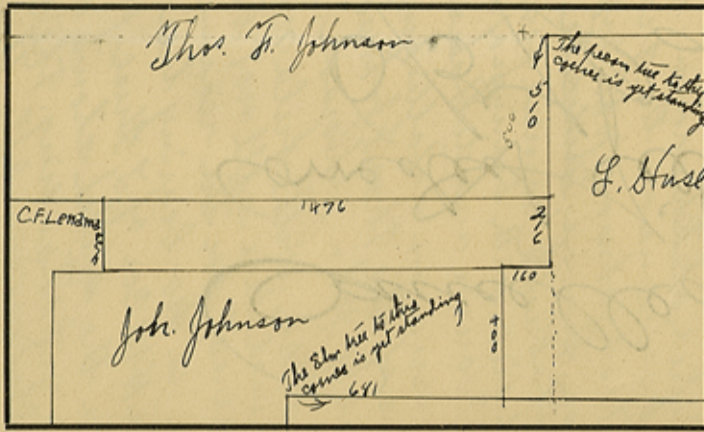 Thos. F. Johnson
The pecan tree to this
corner is yet standing
510
L.
C.F.
1476
216
160
Joh. Johnson
400
The Elm tree to this
corner is yet standing
681